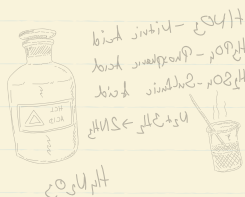 HNO₃ - Nitric Acid
H₃PO₄ - Phosphoric Acid
H₂SO₄ - Sulfuric Acid
N₂+3H₂ → 2NH₃
HCL
ACID
H₄N₂O₃